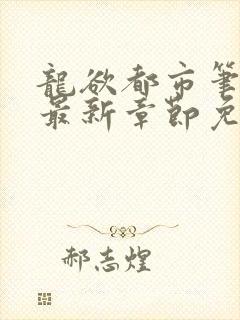 龍欲都市筆
最新章節免
郝志煌